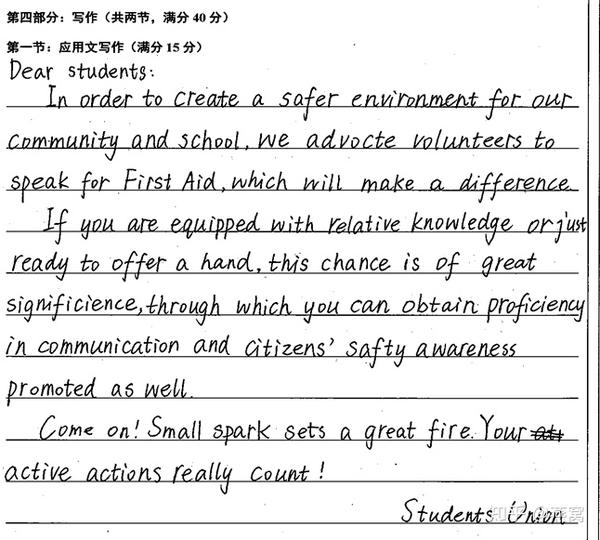 第四部分：写作（共两节，满分 40 分）
第一节：应用文写作（满分 15 分）
Dear students:
In order to create a safer environment for our
community and school, we advocte volunteers to
speak for First Aid, which will make a difference.
If you are equipped with relative knowledge or just
ready to offer a hand, this chance is of great
significience, through which you can obtain proficiency
in communication and citizens' safty awareness
promoted as well.
Come on! Small spark sets a great fire. Your
active actions really count!
Students Union